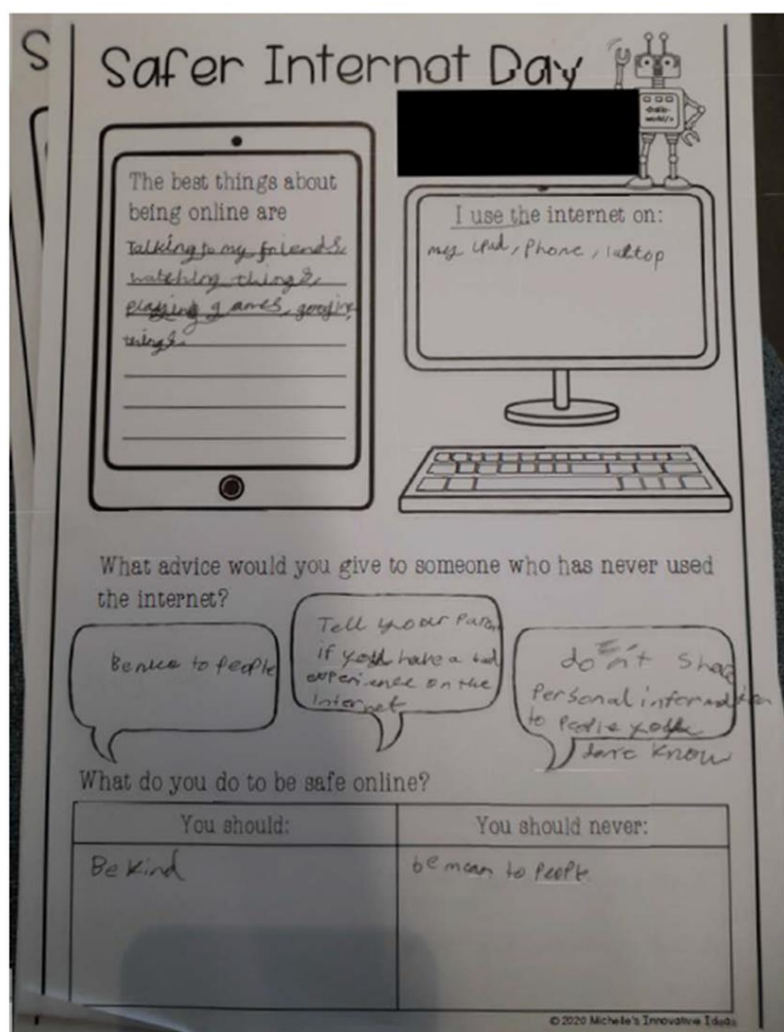 S
Safer Internet Day
<hello-
world/>
The best things about
being online are
Talking to my friends,
watching things,
playing games, googling
things.
I use the internet on:
my ipad, Phone, labtop
What advice would you give to someone who has never used
the internet?
Be nice to people
Tell your Paren
if you have a bad
experience on the
Internet
don't share
Personal information
to people you
dont know
What do you do to be safe online?
You should:
You should never:
Be kind
be mean to People
©2020 Michelle's Innovative Ideas